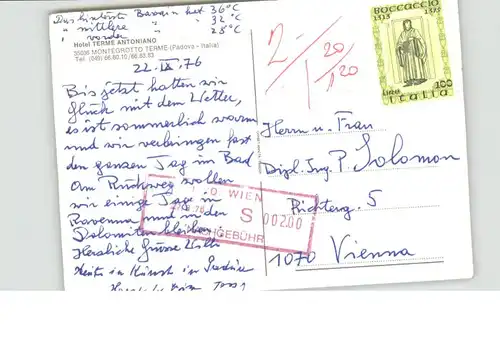 Das hinterste Bassin hat 36°C
" mittlere " " 32°C
" vordere " " 28°C
Hotel TERME ANTONIANO
35036 MONTEGROTTO TERME (Padova - Italia)
Tel. (049)
22. IX. 76
Bis jetzt hatten wir
Glück mit dem Wetter,
es ist sommerlich warm
und wir verbringen fast
den ganzen Tag im Bad
Am Rückweg wollen
wir einige Tage in
Ravenna und in den
Dolomiten bleiben
Herzliche Grüsse
BOCCACCIO
1313 1375
Lire 100
italia
20
1 20
WIEN
S 002.00
GEBÜHR
Herrn u. Frau
Dipl. Ing. P. Solomon
Richterg. 5
1070 Vienna